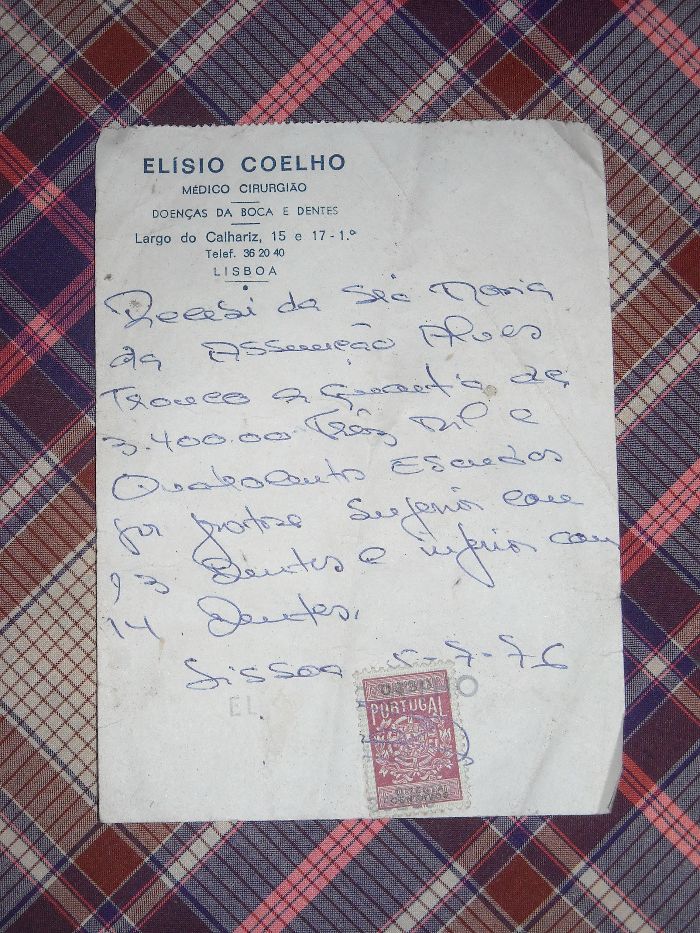 ELÍSIO COELHO
MÉDICO CIRURGIÃO
DOENÇAS DA BOCA E DENTES
Largo do Calhariz, 15 e 17 - 1.º
Telef. 36 20 40
LISBOA
Recebi da Srª Maria
da Assunção Alves
Tronco a quantia de
3.400.00 Três Mil e
Quatrocentos Escudos
por protese Superior com
13 Dentes e inferior com
14 Dentes.
Lisboa 5-7-76
EL O
PORTUGAL